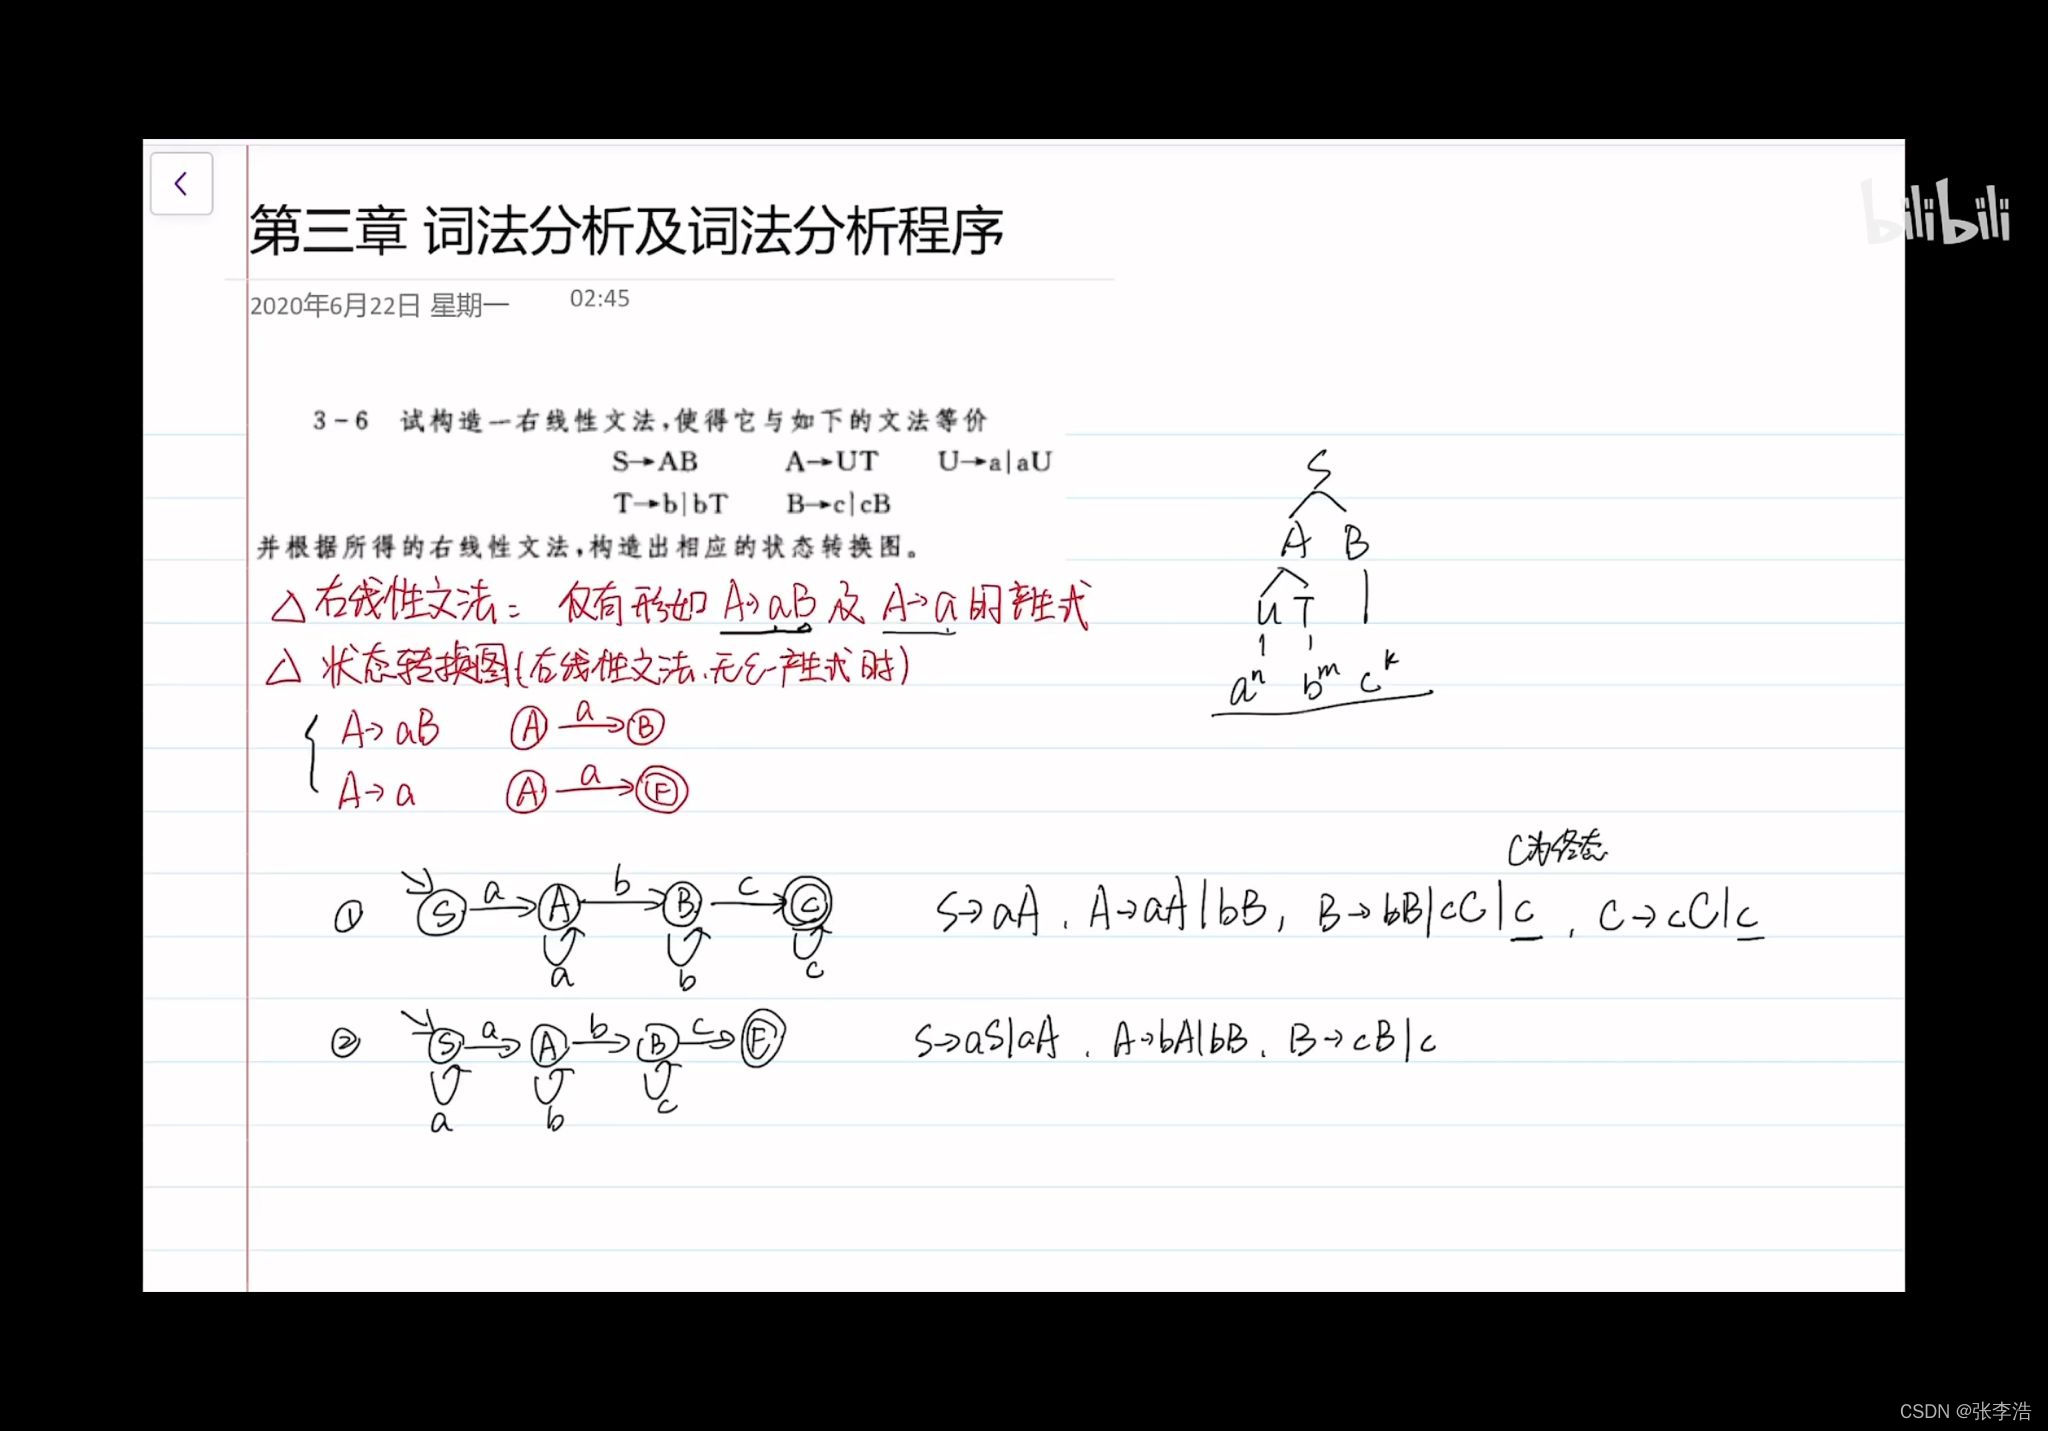 第三章 词法分析及词法分析程序
bilibili
2020年6月22日 星期一 02:45
3-6 试构造一右线性文法,使得它与如下的文法等价
S→AB A→UT U→a|aU
T→b|bT B→c|cB
并根据所得的右线性文法,构造出相应的状态转换图。
S
A B
U T
aⁿ bᵐ cᵏ
△ 右线性文法: 仅有形如 A→aB 及 A→a 的产生式
△ 状态转换图(右线性文法、无ε-产生式时)
A→aB A a B
A→a A a F
C为终态
① S a A b B c C S→aA , A→aA|bB, B→bB|cC|c , C→cC|c
a b c
② S a A b B c F S→aS|aA , A→bA|bB , B→cB|c
a b c
CSDN @张李浩